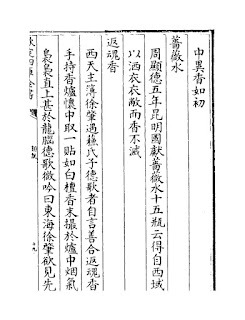 中異香如初
薔薇水
周顯德五年昆明國獻薔薇水十五瓶云得自西域
以洒衣衣敝而香不滅
返魂香
西天主簿徐肇遇蘇氏子德歌者自言善合返魂香
手持香爐懷中取一貼如白檀香末撮於爐中烟氣
裊裊直上甚於龍腦德歌微吟曰東海徐肇欲見先